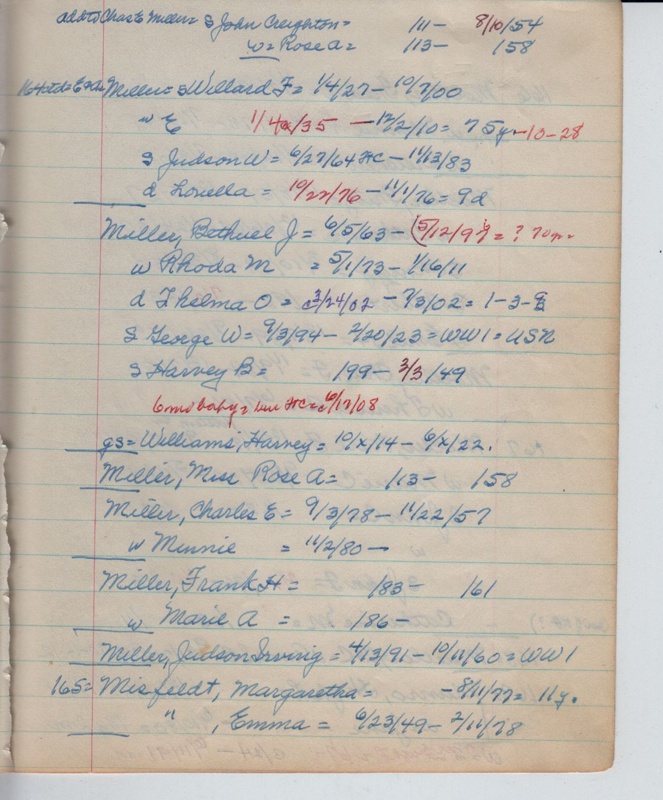 add to Chas E Miller = s John Creighton = /11 - 8/10/54
w = Rose A = /13 - /58
Miller = s Willard F = 1/4/27 - 10/7/00
w E 1/4x/35 - 12/2/10 = 75y - 10-28
s Judson W = 6/27/64 HC - 11/13/83
d Louella = 10/22/76 - 11/1/76 = 9d
Miller, Bethuel J = 6/5/63 - (5/12/9 = ? 70yr
w Rhoda M = 5/1/73 - 1/16/11
d Thelma O = 3/24/02 - 7/3/02 = 1-3-
s George W = 9/3/94 - 2/20/23 = WW1 = USN
s Harvey B = 199 - 3/3/49
6 mo baby = HC = 6/17/08
gs = Williams, Harvey = 10/x/14 - 6/x/22.
Miller, Miss Rose A = /13 - /58
Miller, Charles E = 9/3/78 - 11/22/57
w Minnie = 11/2/80 -
Miller, Frank H = /83 - /61
w Marie A = /86 -
Miller, Judson Irving = 4/13/91 - 10/11/60 = WW1
165 = Misfeldt, Margaretha = - 8/11/77 = 11y.
" , Emma = 6/23/49 - 2/11/78